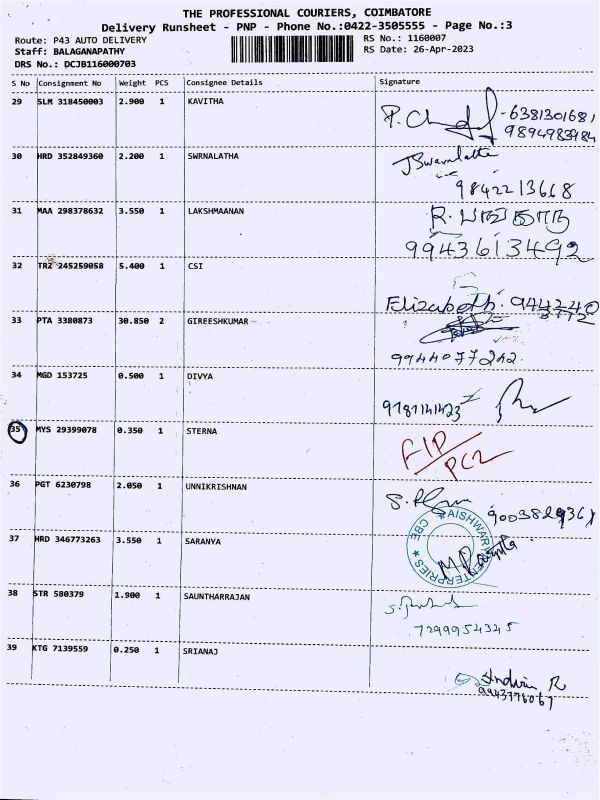 THE PROFESSIONAL COURIERS, COIMBATORE
Delivery Runsheet - PNP - Phone No.:0422-3505555 - Page No.:3
Route: P43 AUTO DELIVERY RS No.: 1160007
Staff: BALAGANAPATHY RS Date: 26-Apr-2023
DRS No.: DCJB116000703
S No Consignment No Weight PCS Consignee Details Signature
29 SLM 318450003 2.900 1 KAVITHA
P. - 6381301681
9894983984
30 HRD 352849360 2.200 1 SWRNALATHA
JSwarnalatha
9842213668
31 MAA 298378632 3.550 1 LAKSHMAANAN
R.
9943613492
32 TRZ 245259058 5.400 1 CSI
Elizabeth. 944240
3772
33 PTA 3380873 30.850 2 GIREESHKUMAR
9944077242.
34 MGD 153725 0.500 1 DIVYA
9787141423
35 MYS 29399078 0.350 1 STERNA
FIP/PCZ
36 PGT 6230798 2.050 1 UNNIKRISHNAN
37 HRD 346773263 3.550 1 SARANYA
AISHWARYA ENTERPRIES ★ CBE ★
38 STR 580379 1.900 1 SAUNTHARRAJAN
7299954345
39 KTG 7139559 0.250 1 SRIANAJ
R
9943776067